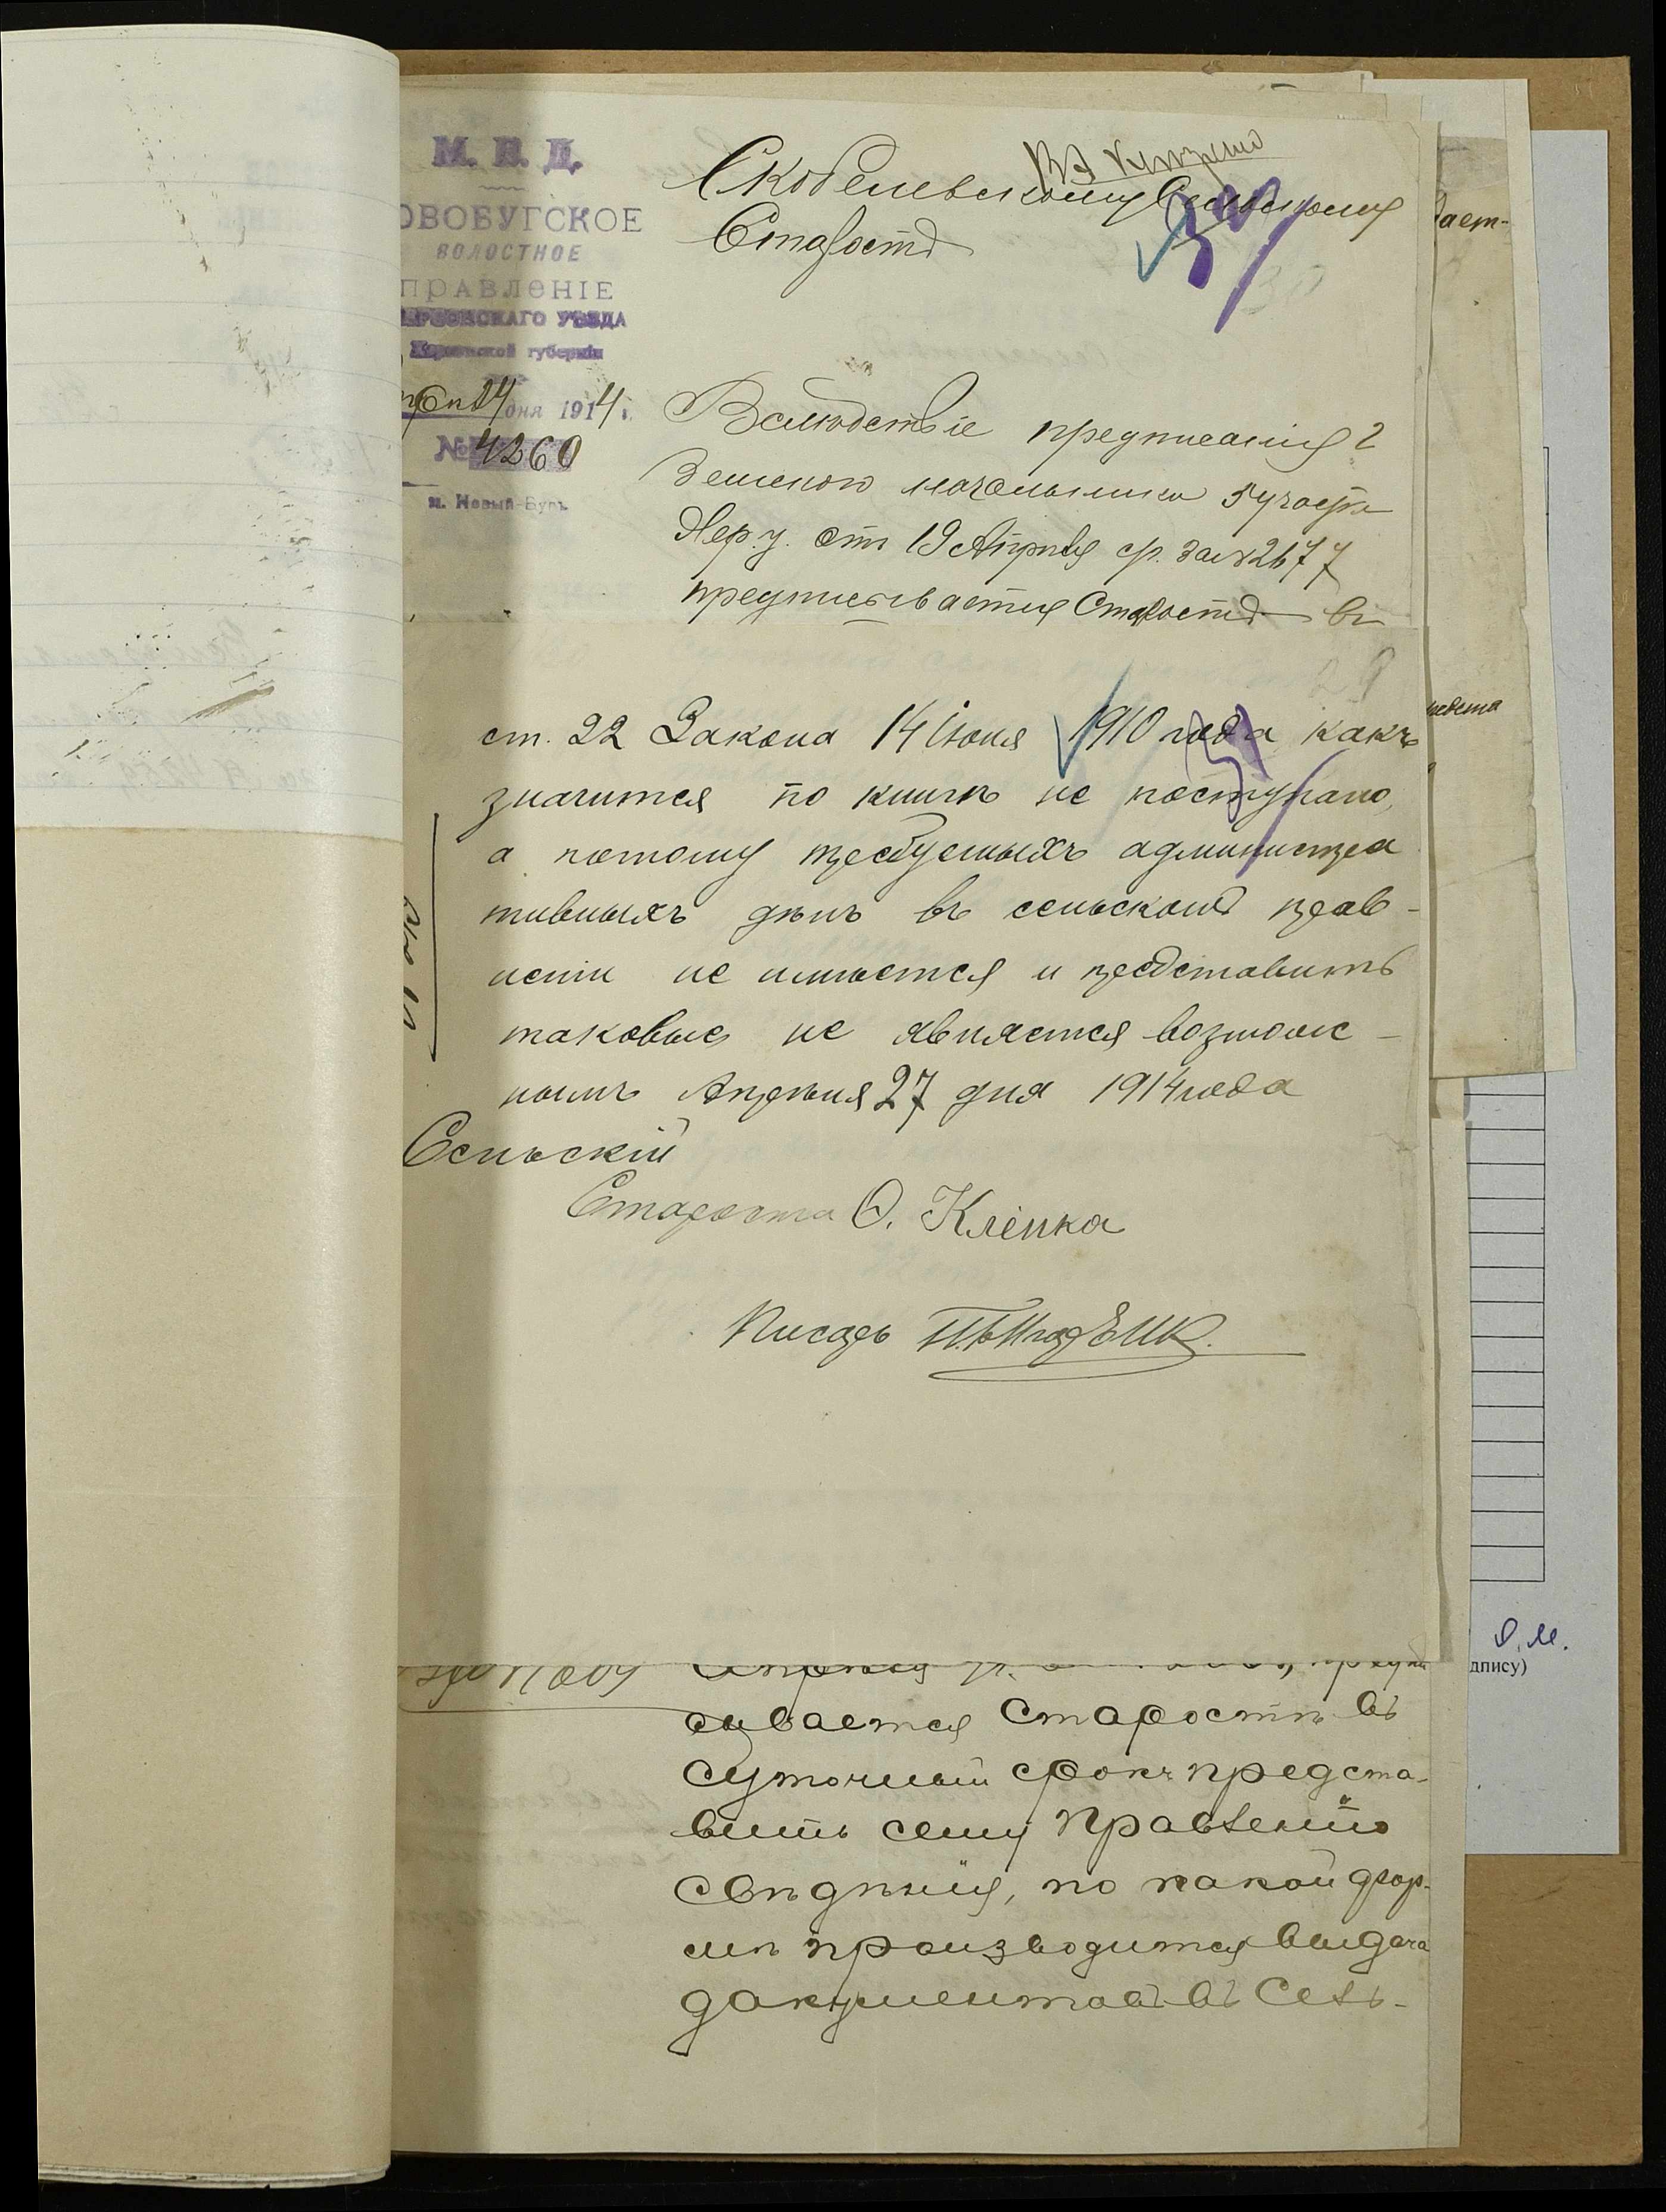 М. В. Д.
ОВОБУГСКОЕ
ВОЛОСТНОЕ
ПРАВЛЕНІЕ
ЕРСОНСКАГО УѢЗДА
Херсонской губерніи
24 дня 1914 г.
№ 4260
м. Новый-Бугъ.
Скобелевскому Сельскому
Старостѣ
30
Вслѣдствіе предписанія г
Земского начальника 5 участка
Хер. у. отъ 19 Апрѣля с/г. за № 2677
предписывается Старостѣ въ
29
ст. 22 Закона 14 Июня 1910 года какъ
значится по книгѣ не поступало,
а потому требуемыхъ администра
тивныхъ дѣлъ въ сельскомъ прав-
леніи не имѣется и представить
таковые не является возможс-
нымъ Апрѣля 27 дня 1914 года
Сельскій
Староста Ѳ. Клёпка
Писарь
сывается Старостѣ въ
суточный срокъ предста-
вить сему правленію
свѣдѣнія, по какой фор-
мѣ производится выдача
документовъ въ Сель-
дает-
О. М.
дпису)